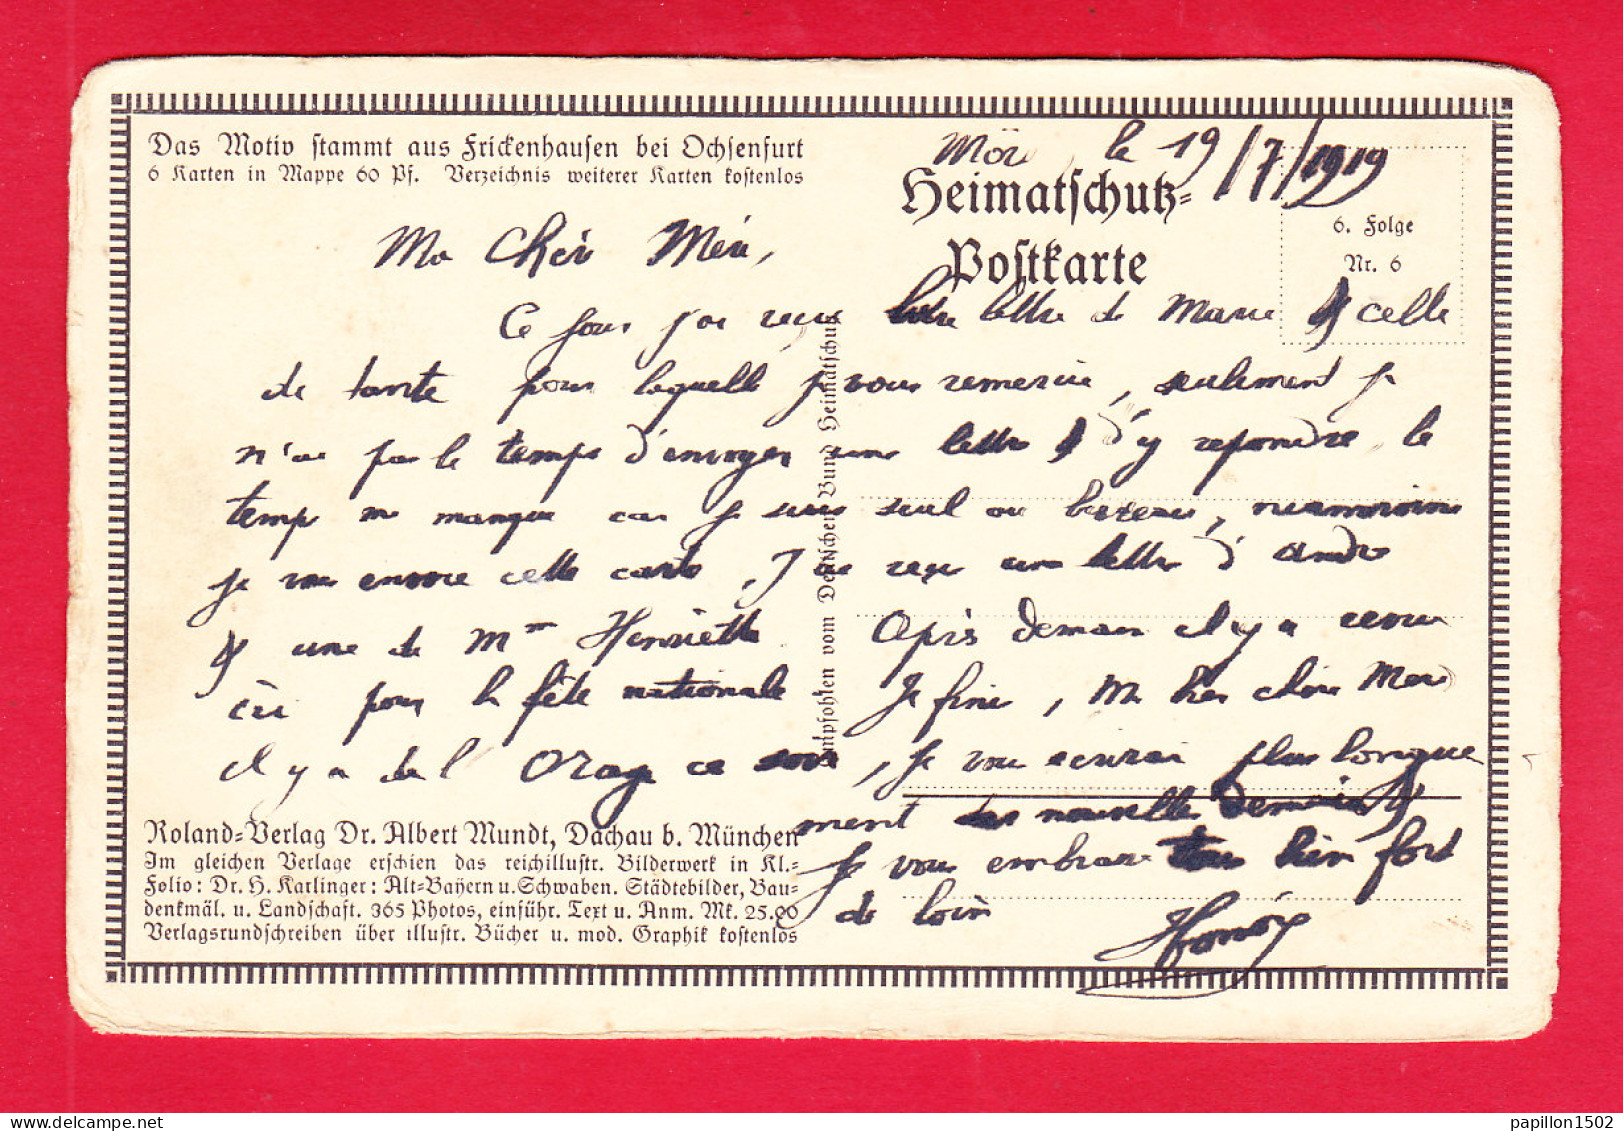 Das Motiv stammt aus Frickenhausen bei Ochsenfurt
6 Karten in Mappe 60 Pf. Verzeichnis weiterer Karten kostenlos
le 19/7/1919
Heimatschutz=
Postkarte
6. Folge
Nr. 6
Ma Cher Mère,
Ce jour j'ai reçu lettre de Marie celle
de tante pour laquelle je vous remercie, seulement je
n'ai pas le temps d'envoyer une lettre d'y repondre le
temps me manque car je suis seul au bureau, neanmoins
je vous envoie cette carte. J'ai reçu une lettre d'André
une de Mme Henriette. Après demain il y a revue
ici pour la fête nationale Je finis, Ma chère Mère
il y a de l'Orage ce soir, je vous ecrirai plus longue
ment des nouvelles Demain
Je vous embrasse tous bien fort
de loin
Empfohlen vom Deutschen Bund Heimatschutz
Roland=Verlag Dr. Albert Mundt, Dachau b. München
Im gleichen Verlage erschien das reichillustr. Bilderwerk in Kl.=
Folio: Dr. H. Karlinger: Alt=Bayern u. Schwaben. Städtebilder, Bau=
denkmäl. u. Landschaft. 365 Photos, einführ. Text u. Anm. Mk. 25.00
Verlagsrundschreiben über illustr. Bücher u. mod. Graphik kostenlos
https://www.delcampe.net
papillon1502